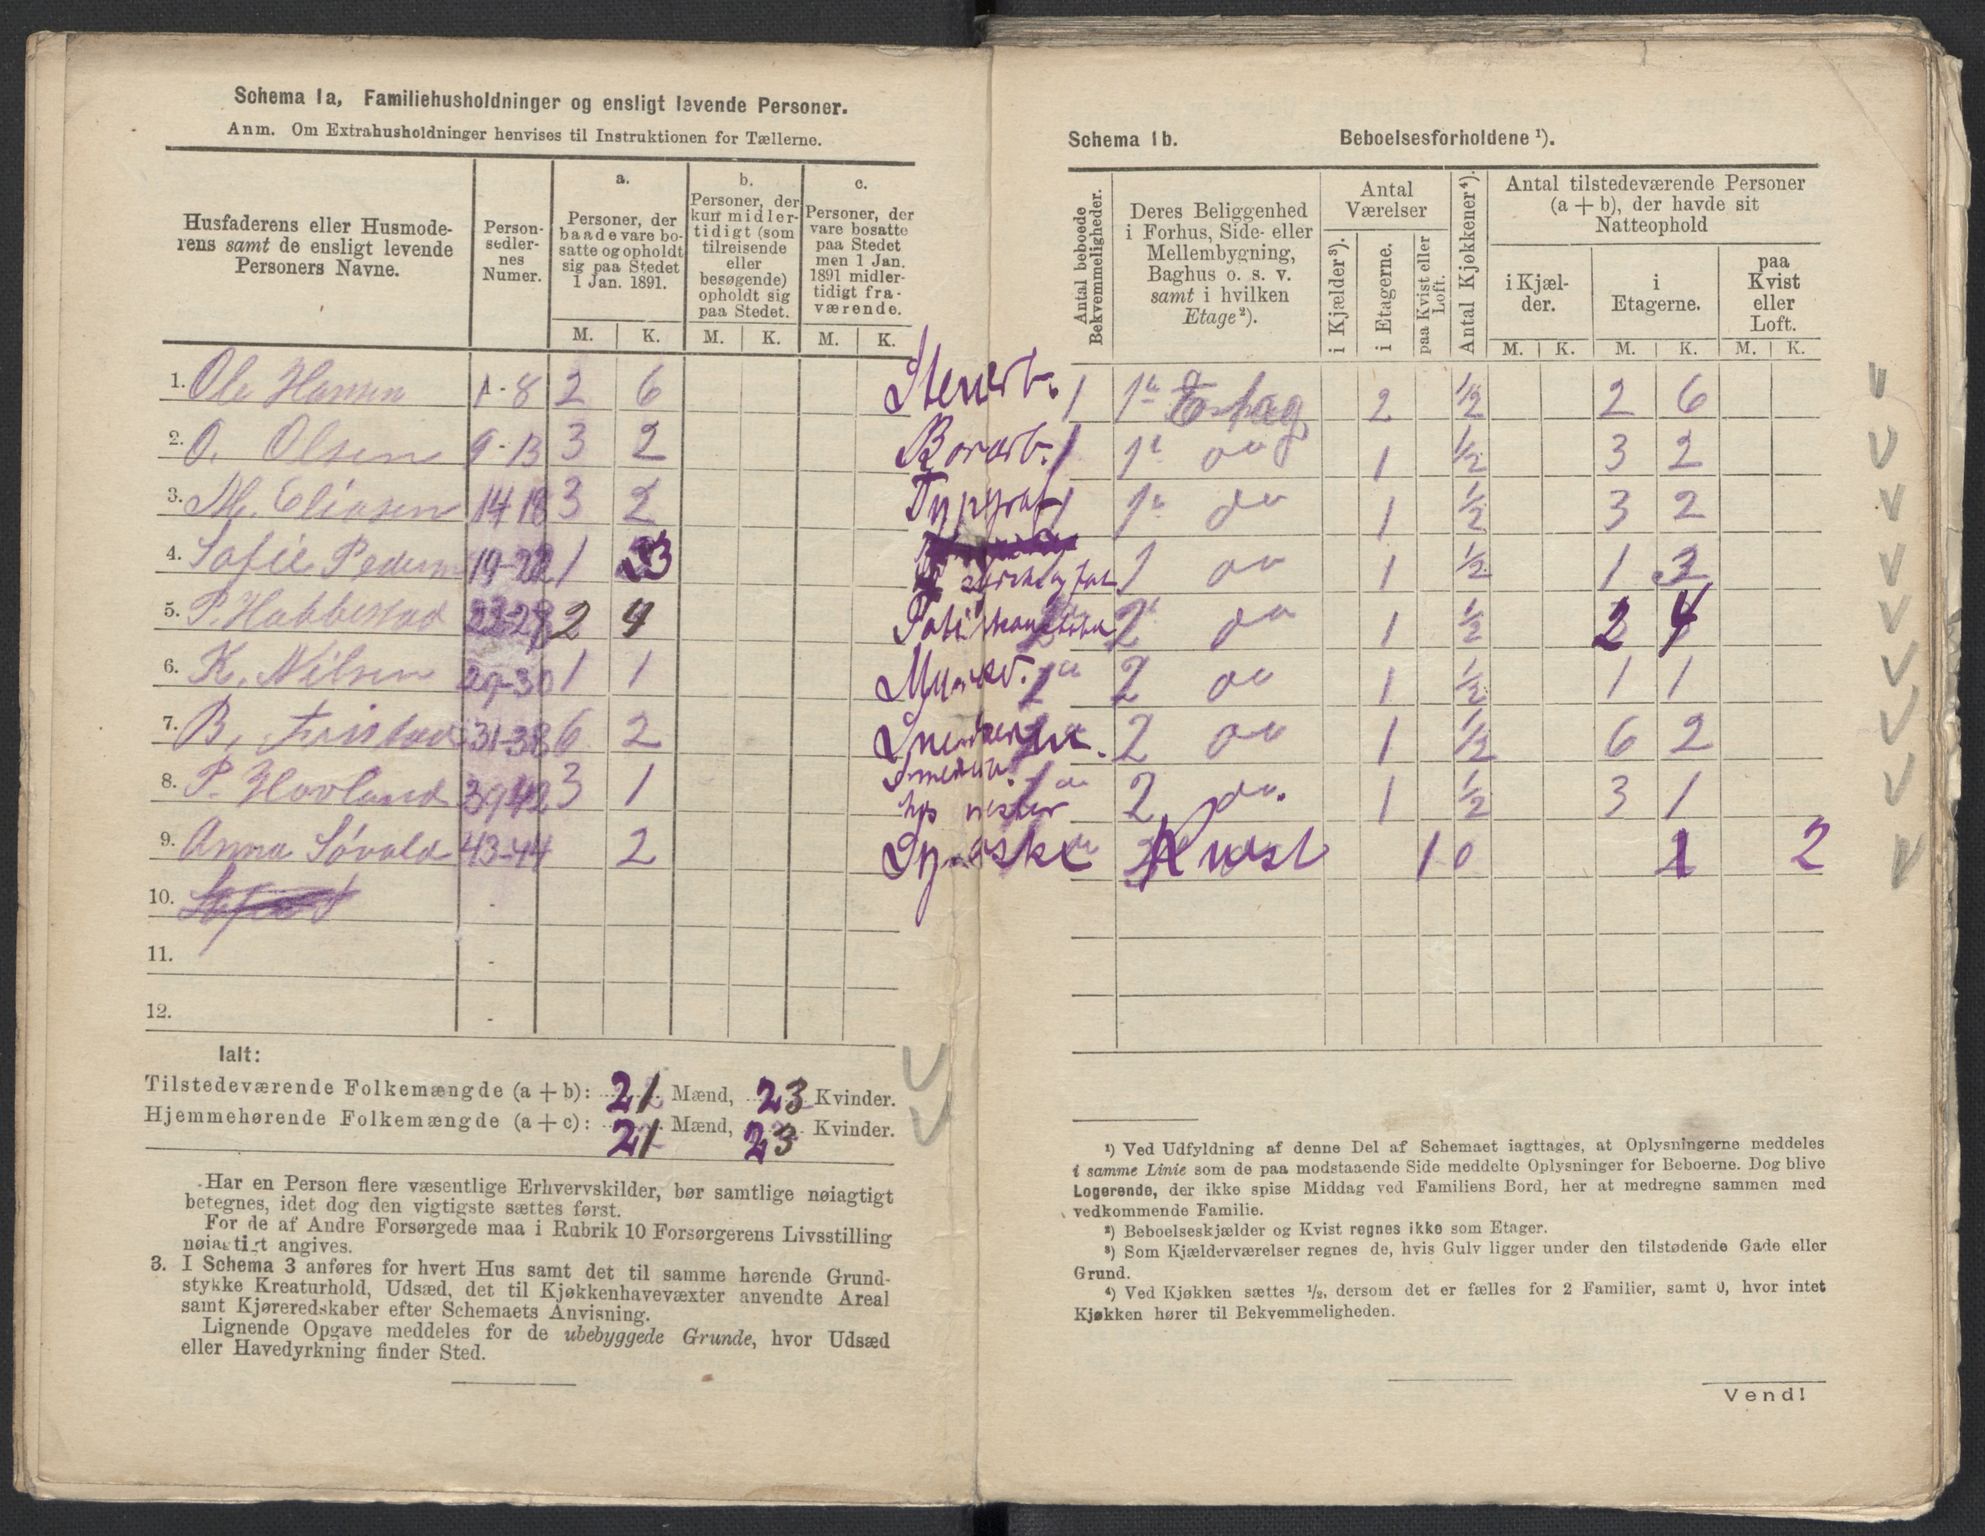 Schema 1a, Familiehusholdninger og ensligt levende Personer.
Anm. Om Extrahusholdninger henvises til Instruktionen for Tællerne.
Husfaderens eller Husmoderens samt de ensligt levende Personers Navne.
Personsedlernes Numer.
a. Personer, der baade vare bosatte og opholdt sig paa Stedet 1 Jan. 1891.
b. Personer, der kun midlertidigt (som tilreisende eller besøgende) opholdt sig paa Stedet.
c. Personer, der vare bosatte paa Stedet men 1 Jan. 1891 midlertidigt fraværende.
M. K. M. K. M. K.
1. Ole Hansen 1-8 2 6
2. O. Olsen 9-13 3 2
3. M. Eliasen 14-18 3 2
4. Sofie Pedersen 19-22 1 3
5. P. Habbestad 23-28 2 4
6. K. Nilsen 29-30 1 1
7. B. Fristad 31-38 6 2
8. P. Hovland 39-42 3 1
9. Anna Sövold 43-44 2
10.
11.
12.
Ialt:
Tilstedeværende Folkemængde (a + b): 21 Mænd, 23 Kvinder.
Hjemmehørende Folkemængde (a + c): 21 Mænd, 23 Kvinder.
Har en Person flere væsentlige Erhvervskilder, bør samtlige nøiagtigt
betegnes, idet dog den vigtigste sættes først.
For de af Andre Forsørgede maa i Rubrik 10 Forsørgerens Livsstilling
nøiagtigt angives.
3. I Schema 3 anføres for hvert Hus samt det til samme hørende Grund-
stykke Kreaturhold, Udsæd, det til Kjøkkenhavevæxter anvendte Areal
samt Kjøreredskaber efter Schemaets Anvisning.
Lignende Opgave meddeles for de ubebyggede Grunde, hvor Udsæd
eller Havedyrkning finder Sted.
Schema 1b. Beboelsesforholdene ¹).
Antal beboede Bekvemmeligheder.
Deres Beliggenhed i Forhus, Side- eller Mellembygning, Baghus o. s. v. samt i hvilken Etage²).
Antal Værelser
i Kjælder³).
i Etagerne.
paa Kvist eller Loft.
Antal Kjøkkener⁴).
Antal tilstedeværende Personer (a + b), der havde sit Natteophold
i Kjælder.
i Etagerne.
paa Kvist eller Loft.
M. K. M. K. M. K.
Stenarb. 1 1ª Etag 2 ½ 2 6
Borarb. 1 1ª do 1 ½ 3 2
Typograf 1 1ª do 1 ½ 3 2
1 do 1 ½ 1 3
2 do 1 ½ 2 4
2 do 1 ½ 1 1
2 do 1 ½ 6 2
2 do. 1 ½ 3 1
Kvist 1 0 2
¹) Ved Udfyldning af denne Del af Schemaet iagttages, at Oplysningerne meddeles
i samme Linie som de paa modstaaende Side meddelte Oplysninger for Beboerne. Dog blive
Logerende, der ikke spise Middag ved Familiens Bord, her at medregne sammen med
vedkommende Familie.
²) Beboelseskjælder og Kvist regnes ikke som Etager.
³) Som Kjælderværelser regnes de, hvis Gulv ligger under den tilstødende Gade eller
Grund.
⁴) Ved Kjøkken sættes ½, dersom det er fælles for 2 Familier, samt 0, hvor intet
Kjøkken hører til Bekvemmeligheden.
Vend!